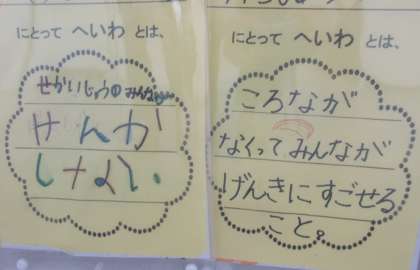 にとって へいわ とは、
せかいじゅうのみんなが
けんか
しない.
にとって へいわ とは、
ころなが
なくってみんなが
げんきにすごせる
こと。